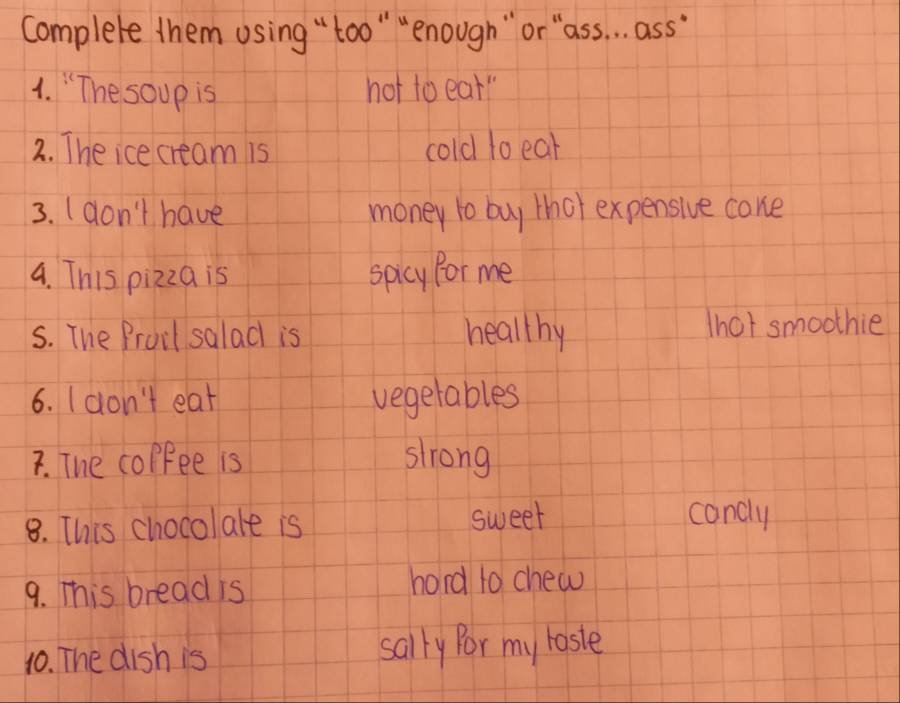 Complete them using "too" "enough" or "ass... ass"
1. "The soup is hot to eat"
2. The ice cream is cold to eat
3. I don't have money to buy that expensive cake
4. This pizza is spicy for me
5. The fruit salad is healthy that smoothie
6. I don't eat vegetables
7. The coffee is strong
8. This chocolate is sweet candy
9. This bread is hard to chew
10. The dish is salty for my taste